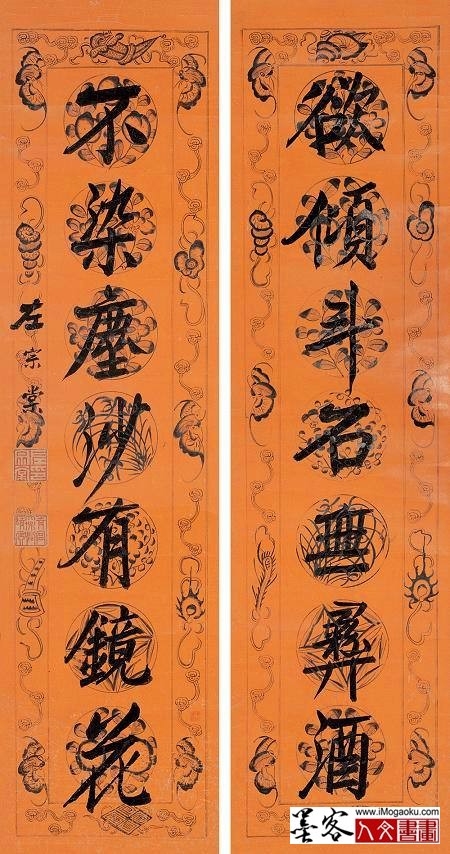 欲傾斗石無彝酒
不染塵沙有鏡花
左宗棠
www.iMogaoku.com
墨客
人文書畫